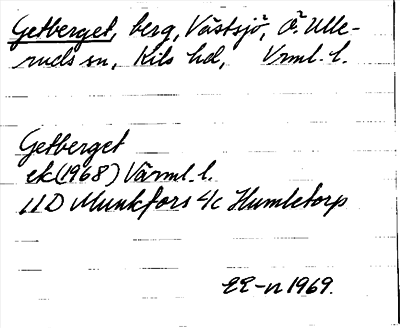 Getberget, berg, Västsjö, Ö. Ulle-
ruds sn, Kils hd, Vrml. l.
Getberget
ek (1968) Värml. l.
11D Munkfors 4/c Humletorp
EE-n 1969.